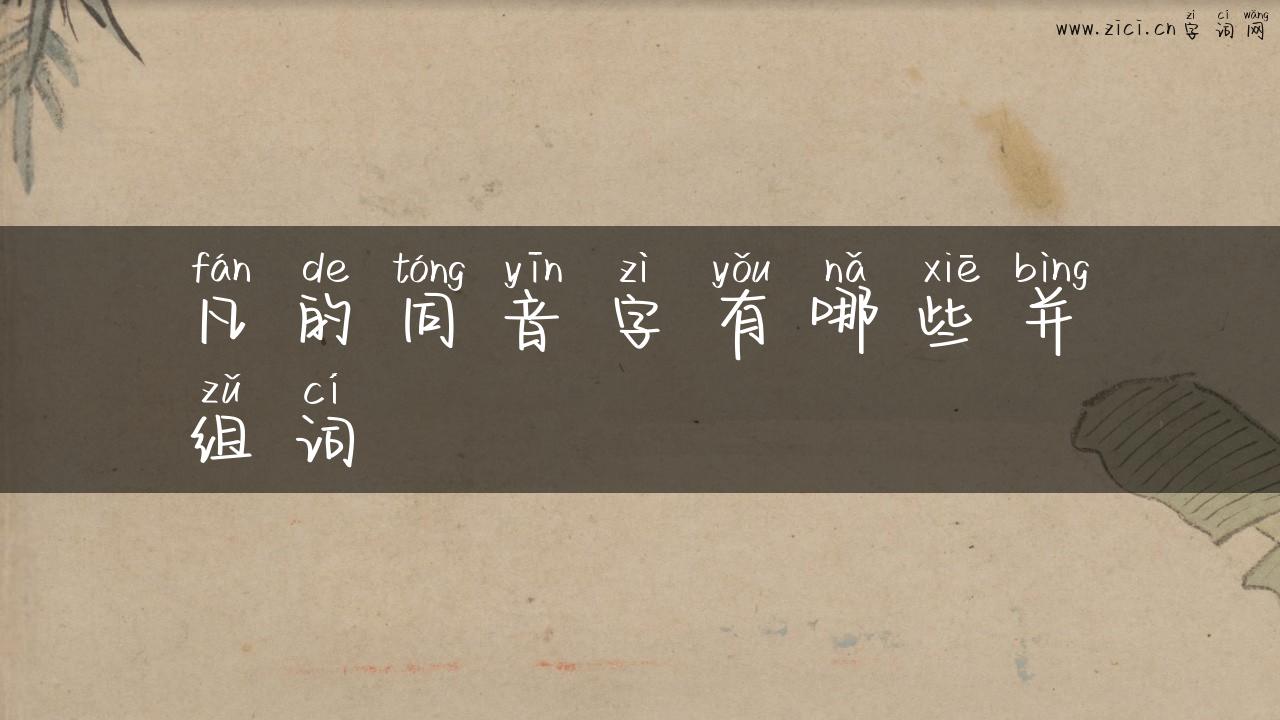 zì cí wǎng
www.zici.cn 字 词 网
fán de tóng yīn zì yǒu nǎ xiē bìng
凡 的 同 音 字 有 哪 些 并
zǔ cí
组 词